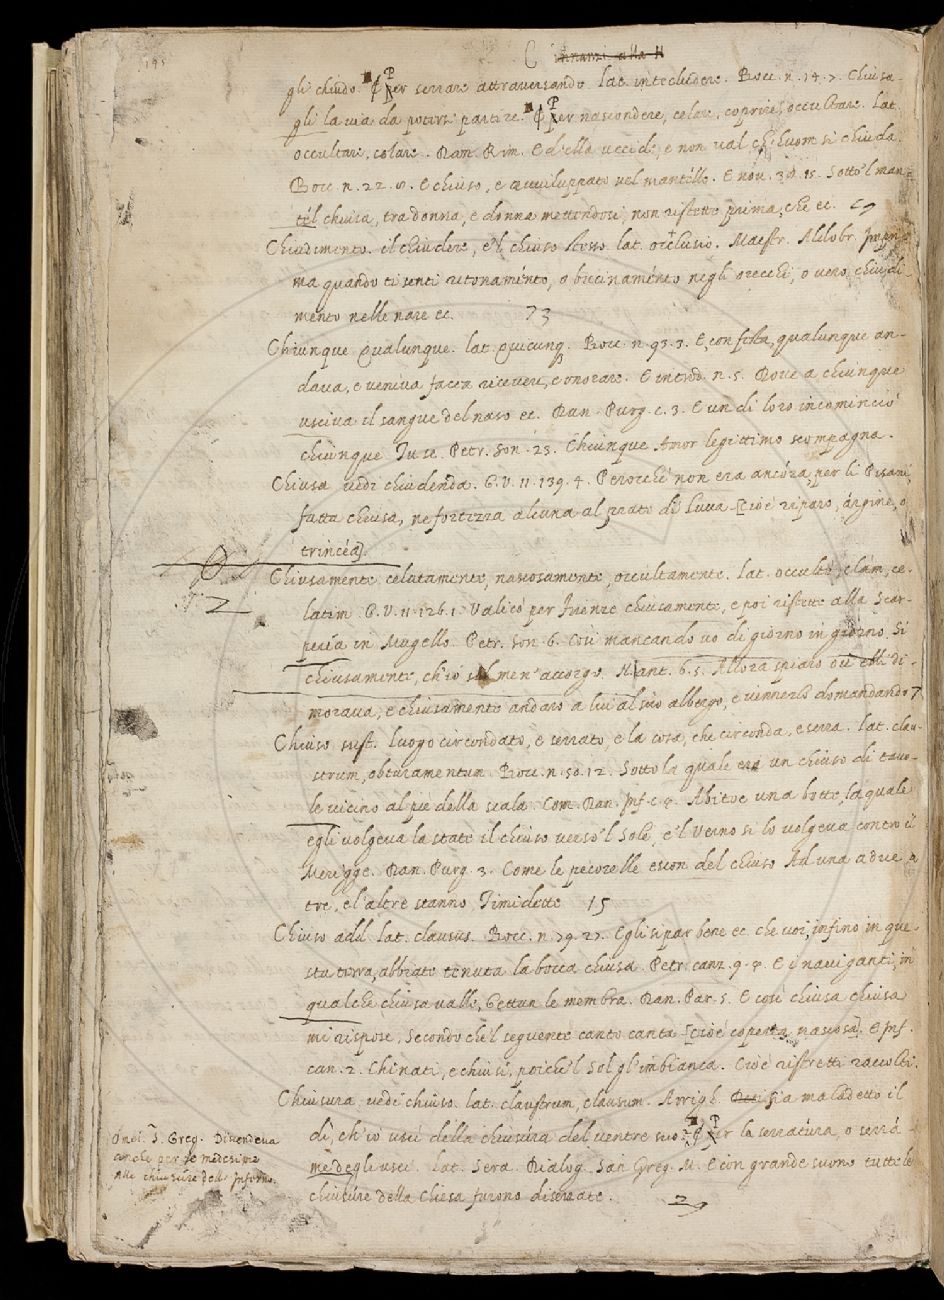 195
C innanzi alla H
gli chiudo. ¶ Per serrare attraversando. lat. intercludere. Bocc. n. 14. 7. Chiusa-
gli la via da potersi partire. ¶ Per nascondere, celare, coprire, occultare. lat.
occultare, celare. Dan. Rim. E d'ella uccide, e non val ch'huom si chiuda.
Bocc. n. 22. E chiuso, e avviluppato nel mantello. E nov. Sotto 'l man-
tel chiusa, tra donna, e donna mettendosi, non ristette prima, che ec. 29
Chiudimento. il chiudere, e 'l chiuso stesso. lat. occlusio. Maestr. Aldobr. Impri-
ma quando ti senti retonaménto, o bucinaménto negli orecchi, o vero chiudi-
mento nelle nare ec. 73
Chiunque Qualunque. lat. Quicunq. Bocc. n. 93. 3. E con festa, qualunque an-
dava, e veniva facea ricevere, e onorare. E introd. n. 5. Dove a chiunque
usciva il sangue del naso ec. Dan. Purg. c. 3. E un di loro incominciò
chiunque Tu se. Petr. Son. 25. Chiunque Amor legittimo scompagna.
Chiusa vedi chiudenda. G.V. 11. 139. 4. Perocchè non era ancóra, per li Pisani,
fatta chiusa, ne fortezza alcuna al prato di Lucca [cioè riparo, árgine, o
trincéa].
Chiusamente celatamente, nascosamente, occultamente. lat. occultè, clám, ce-
latim. G.V. 11. 126. 1. Valicò per Firenze chiusamente, e poi ristette alla Scar-
peria in Mugello. Petr. Son. 6. Così mancando vo di giorno in giorno, Si
chiusamente, ch'io sol men' accorgo. N. ant. 6. 5. Allora spiaro ove elli di-
morava, e chiusamente andaro a lui al suo albergo, e vennerlo domandando 7
Chiuso sust. Luogo circondato, e serrato, e la cosa, che circonda, e serra. lat. clau-
strum, obturamentum. Bocc. n. 50. 12. Sotto la quale era un chiuso di tavo-
le vicino al piè della scala. Com. Dan. Inf. c. Abitoe una botte, la quale
egli volgeva la state il chiuso verso 'l Sole, e 'l Verno si lo volgeva contro il
Merigge. Dan. Purg. 3. Come le pecorelle escon del chiuso Ad una a due a
tre, e l'altre stanno Timidette 15
Chiuso add. lat. clausus. Bocc. n. 79. 27. Egli si par bene ec. che voi, infino in que-
sta terra, abbiate tenuta la bocca chiusa. Petr. canz. 9. E i naviganti, in
qualche chiusa valle, Gettan le membra. Dan. Par. 5. E così chiusa chiusa
mi rispose, Secondo che 'l seguente canto canta [cioè coperta, nascosa]. E Inf.
can. 2. Chinati, e chiusi, poichè 'l Sol gl'imbianca. Cioè ristretti raccolti.
Chiusura vedi chiuso. lat. claustrum, clausum. Arrigh. sia maladetto il
dì, ch'io uscì della chiusúra del ventre suo. ¶ Per la serratúra, o serrá-
me degli usci. lat. Sera. Dialog. San Greg. M. E con grande suono tutte le
chiusúre della chiesa furono diserrate. 29
Omel. S. Greg. Discendeva
anche per se medesimo
alle chiusúre dello Inferno.